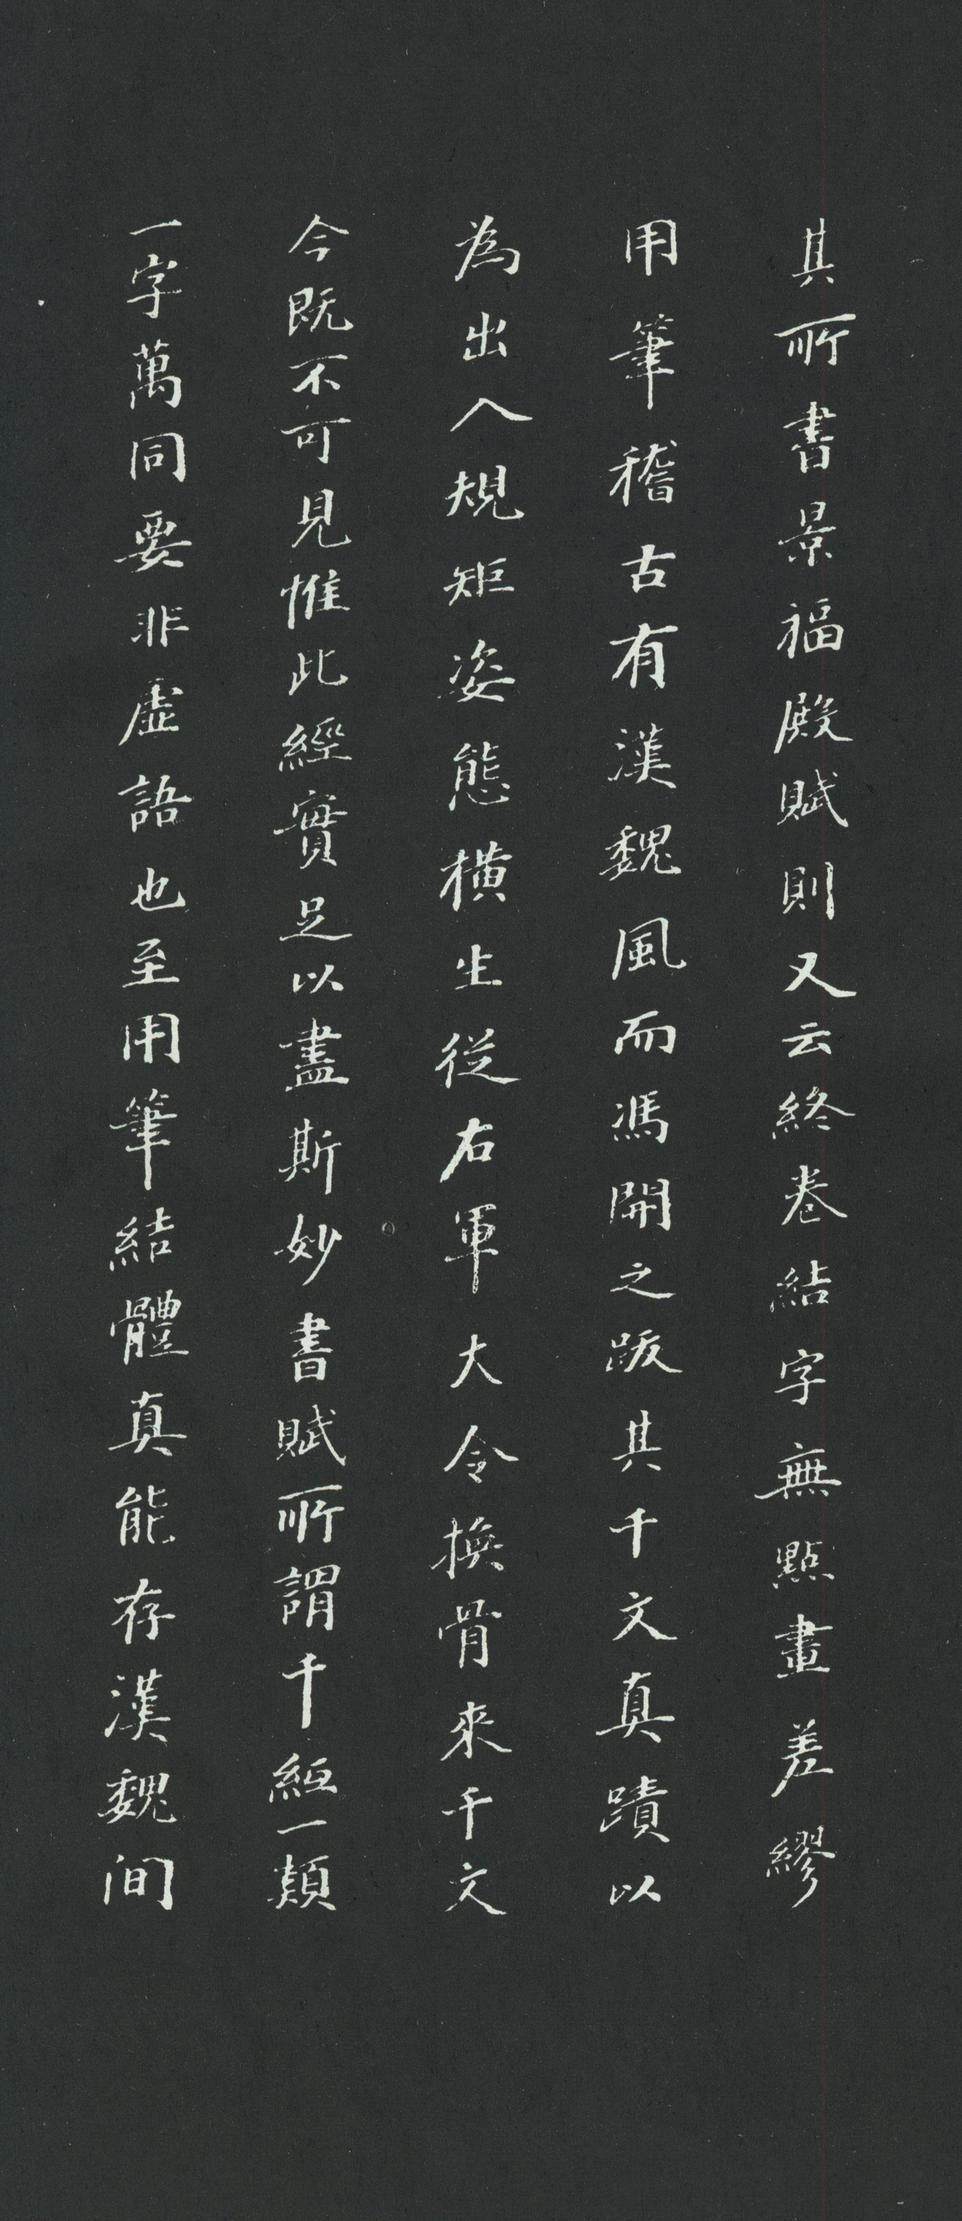 其所書景福殿賦則又云終卷結字無點畫差繆
用筆稽古有漢魏風而馮開之跋其千文真蹟以
為出入規矩姿態橫生從右軍大令換骨來千文
今既不可見惟此經實足以盡斯妙書賦所謂千絙一類
一字萬同要非虛語也至用筆結體真能存漢魏間